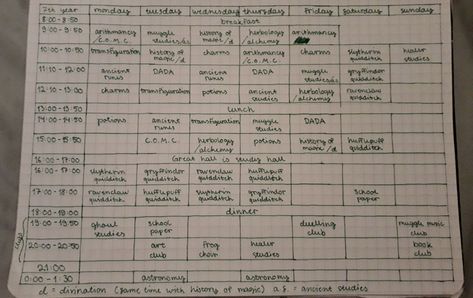 7th year monday tuesday wednesday thursday friday saturday sunday
8:00 - 8:50 breakfast
9:00 - 9:50 arithmancy / C.O.M.C. muggle studies history of magic / d herbology / alchemy arithmancy
10:00 - 10:50 transfiguration history of magic / d charms arithmancy / C.O.M.C. charms slytherin quidditch healer studies
11:10 - 12:00 ancient runes DADA ancient runes DADA muggle studies gryffindor quidditch
12:10 - 13:00 charms transfiguration potions ancient studies herbology / alchemy ravenclaw quidditch
13:00 - 13:50 lunch
14:00 - 14:50 potions ancient runes transfiguration muggle studies DADA
15:00 - 15:50 C.O.M.C. herbology / alchemy potions history of magic / d hufflepuff quidditch
16:00 - 17:00 Great hall is study hall
16:00 - 17:00 slytherin quidditch gryffindor quidditch ravenclaw quidditch hufflepuff quidditch
17:00 - 18:00 ravenclaw quidditch hufflepuff quidditch slytherin quidditch gryffindor quidditch school paper
18:00 - 19:00 dinner
clubs
19:00 - 19:50 ghoul studies school paper duelling club muggle music club
20:00 - 20:50 art club frog choir healer studies book club
21:00
0:00 - 1:30 astronomy astronomy
d = divination (same time with history of magic) a.s. = ancient studies